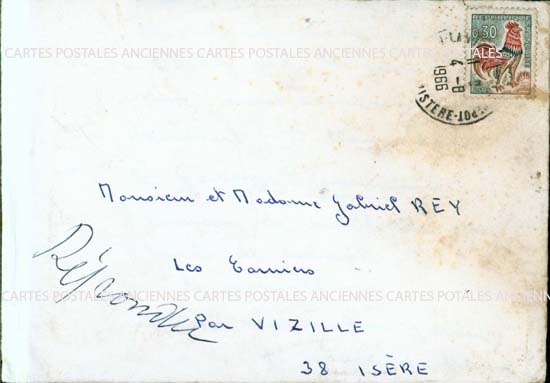 REPUBLIQUE FRANCAISE
0,30
POSTES
4 - 8
1966
ISTERE
CARTES POSTALES ANCIENNES CARTES POSTALES ANCIENNES CARTES POSTALES
Monsieur et Madame Gabriel REY
Les
CARTES POSTALES ANCIENNES CARTES POSTALES ANCIENNES CARTES POSTALES
Par VIZILLE
38 ISÈRE